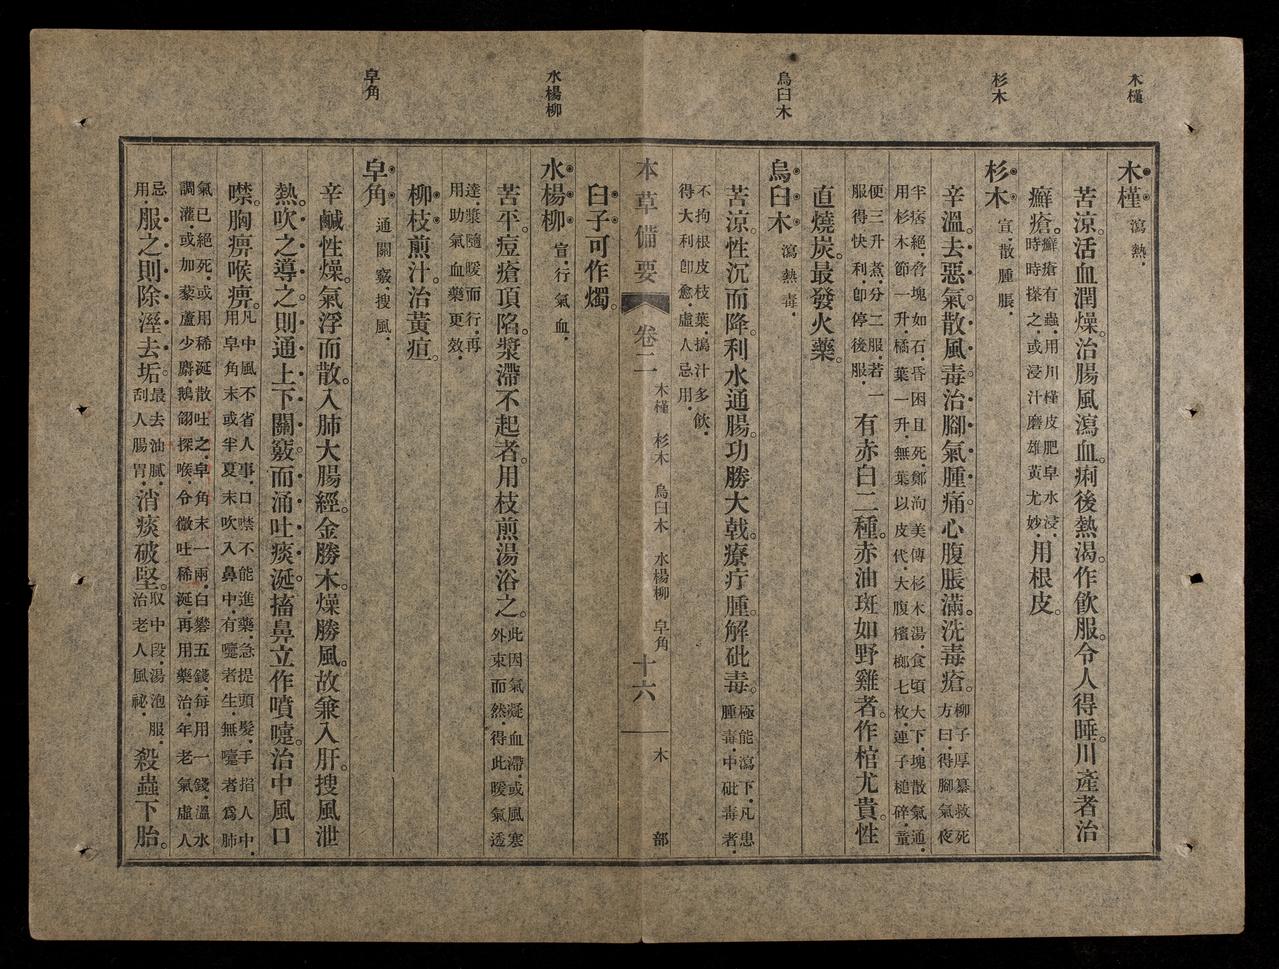 木槿
杉木
烏臼木
水楊柳
皁角
木槿 瀉熱.
苦涼。活血潤燥。治腸風瀉血。痢後熱渴。作飲服。令人得睡。川產者治
癬瘡。癬瘡有蟲.用川槿皮肥皁水浸.時時搽之.或浸汁磨雄黃尤妙.用根皮。
杉木 宣.散腫脹.
辛溫。去惡氣。散風毒。治腳氣腫痛。心腹脹滿。洗毒瘡。柳子厚纂救死方曰.得腳氣夜
半痞絕.脅塊如石.昏困且死.鄭洵美傳杉木湯.食頃大下.塊散氣通.用杉木節一升.橘葉一升.無葉以皮代.大腹檳榔七枚.連子槌碎.童
便三升煮.分二服.若一服得快利.卽停後服.有赤白二種。赤油斑如野雞者。作棺尤貴。性
直燒炭。最發火藥。
烏臼木 瀉熱毒.
苦涼。性沉而降。利水通腸。功勝大戟。療疔腫。解砒毒。極能瀉下.凡患腫毒.中砒毒者.
不拘根皮枝葉.搗汁多飲.得大利卽愈.虛人忌用.
本草備要 卷二 木槿 杉木 烏臼木 水楊柳 皁角 十六 木部
臼子可作燭。
水楊柳 宣.行氣血.
苦平。痘瘡頂陷。漿滯不起者。用枝煎湯浴之。此因氣凝血滯.或風寒外束而然.得此暖氣透
達.漿隨暖而行.再用助氣血藥更效.
柳枝煎汁。治黃疸。
皁角 通關竅.搜風.
辛鹹性燥。氣浮而散。入肺大腸經。金勝木。燥勝風。故兼入肝。搜風泄
熱。吹之導之。則通上下關竅。而涌吐痰涎。搐鼻立作噴嚏。治中風口
噤。胸痹喉痹。凡中風不省人事.口噤不能進藥.急提頭髮.手掐人中.用皁角末或半夏末吹入鼻中.有嚏者生.無嚏者爲肺
氣已絕死.或用稀涎散吐之.皁角末一兩.白礬五錢.每用一錢.溫水調灌.或加藜蘆少麝.鵝翎探喉.令微吐稀涎.再用藥治.年老氣虛人
忌用.服之則除溼去垢。最去油膩.刮人腸胃.消痰破堅。取中段.湯泡服.治老人風祕.殺蟲下胎。